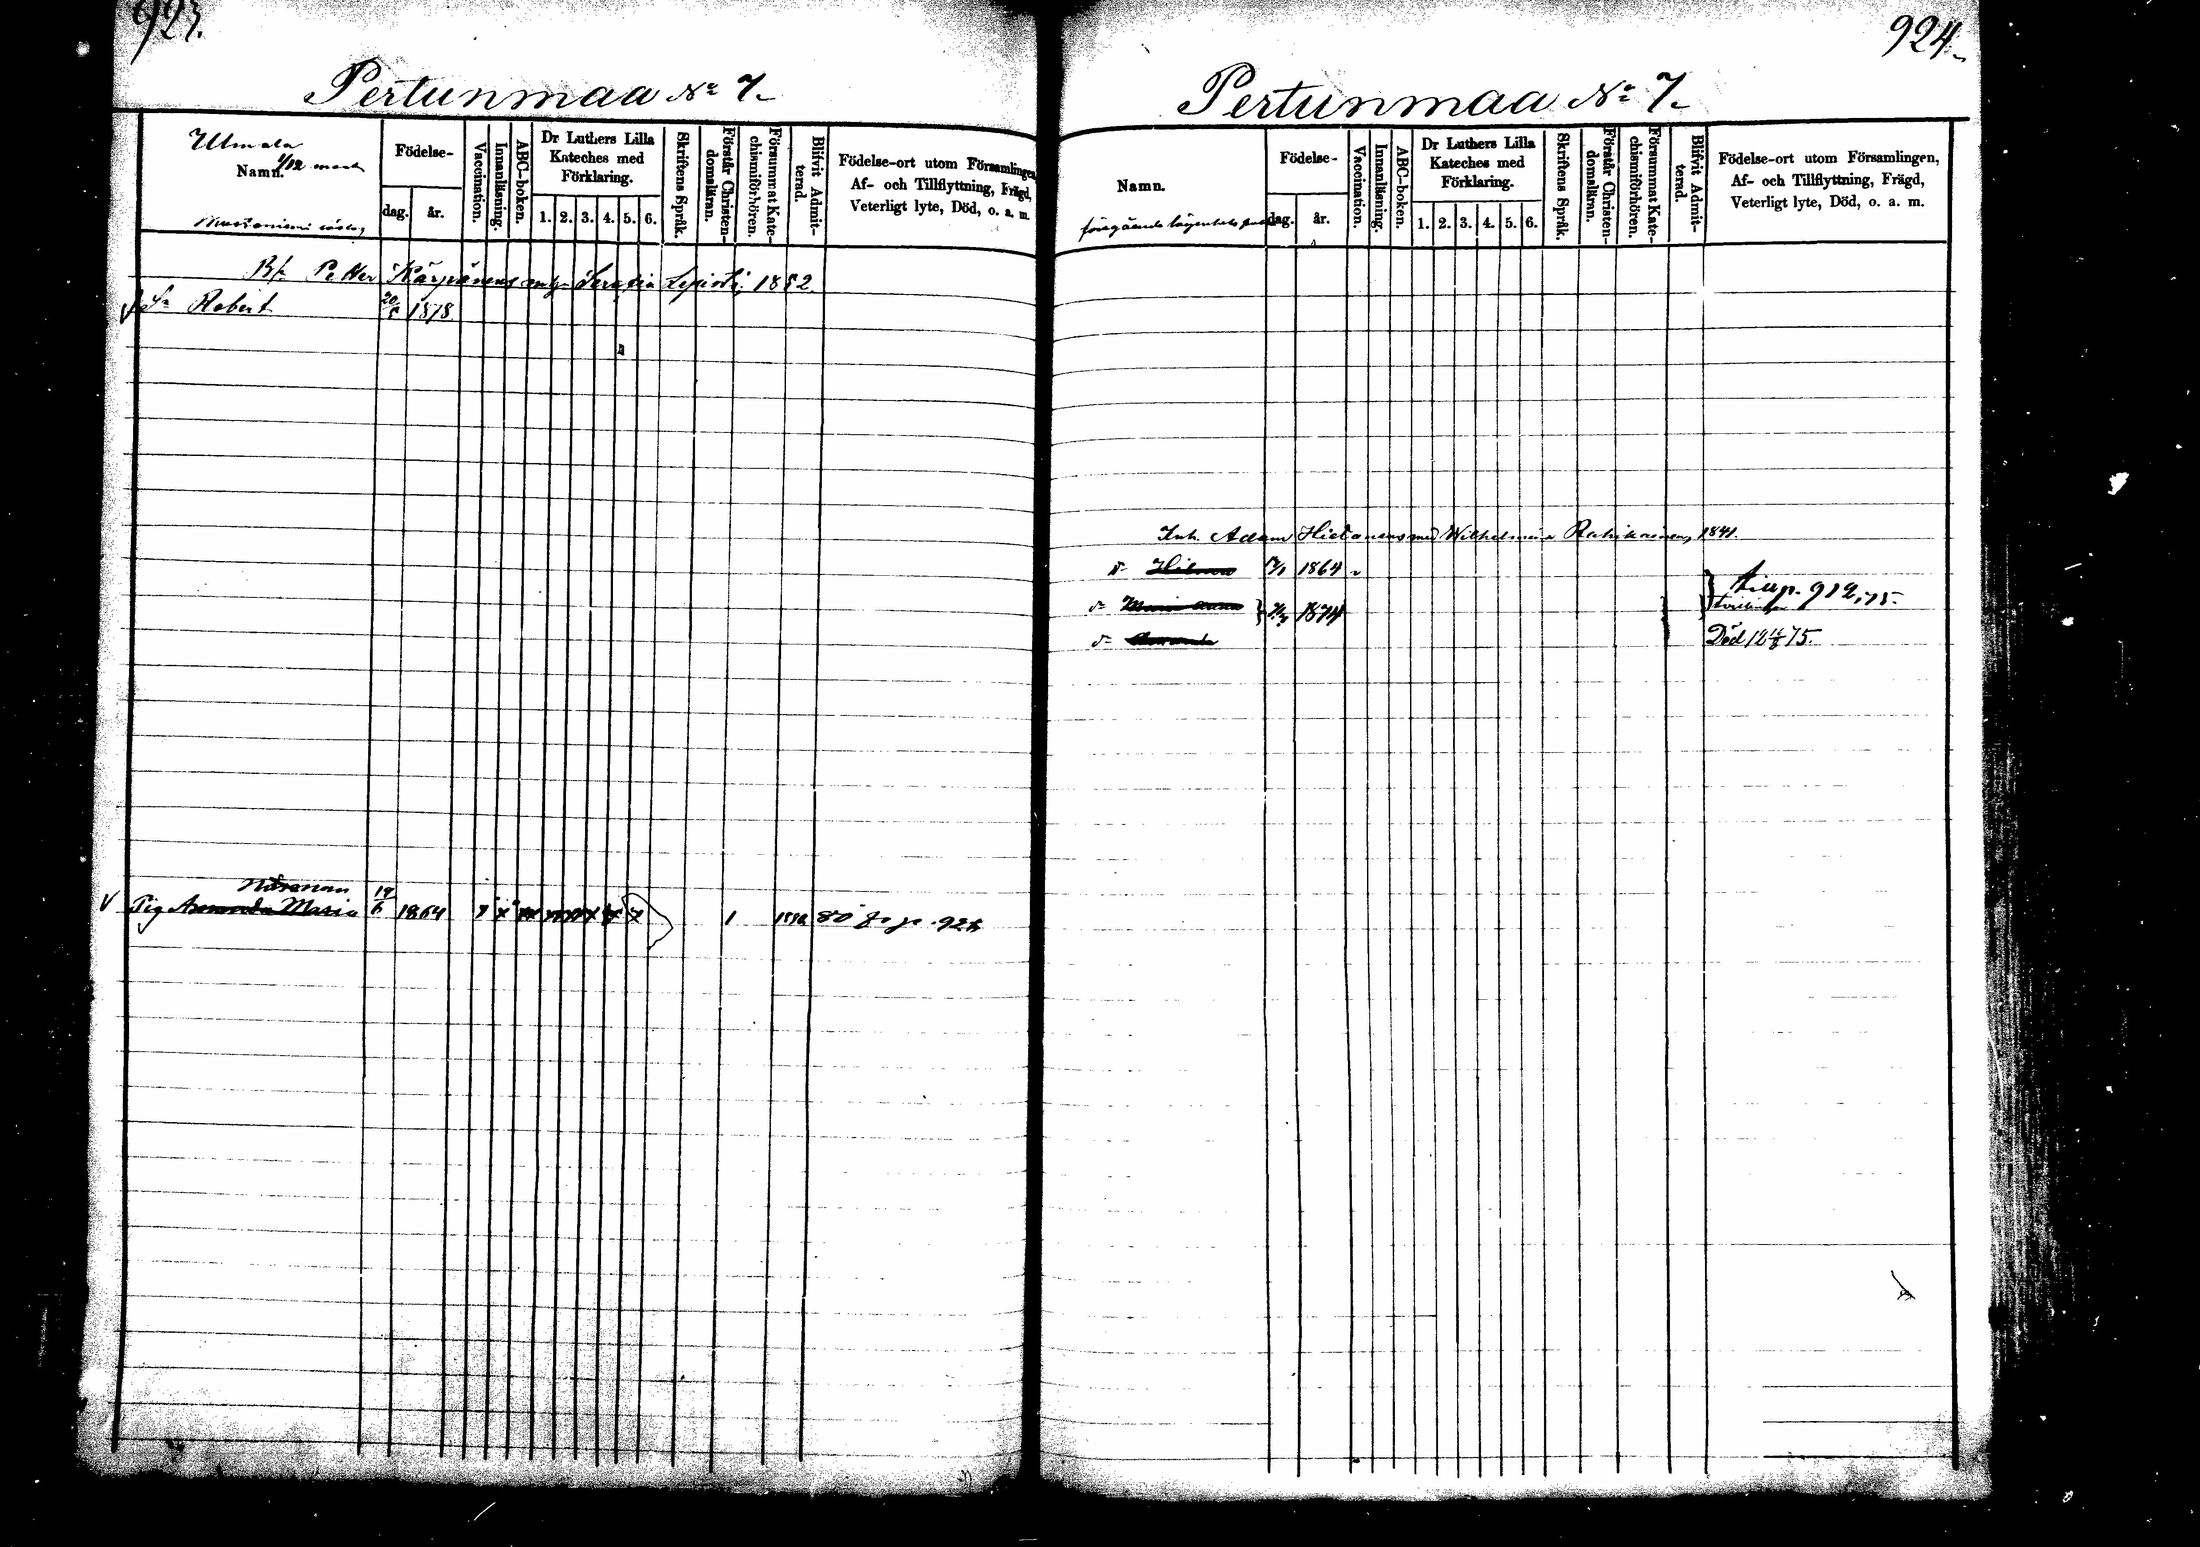 923.
Pertunmaa No 7.
Ulmala
1/12 mant.
Namn.
Födelse-
dag.
år.
Vaccination.
Innanläsning.
ABC-boken.
Dr Luthers Lilla
Kateches med
Förklaring.
1. 2. 3. 4. 5. 6.
Skriftens Språk.
Förstår Christen-
domsläran.
Försummat Kate-
chismiförhören.
Blifvit Admit-
terad.
Födelse-ort utom Församlingen,
Af- och Tillflyttning, Frägd,
Veterligt lyte, Död, o. a. m.
Petter Kärpänens Lepistö 1852
Sn Robert 20/5 1878
Pig Amanda Maria 19/6 1864 1 80 p. 924
924.
Pertunmaa No 7.
Namn.
föregående lägenhets
Födelse-
dag.
år.
Vaccination.
Innanläsning.
ABC-boken.
Dr Luthers Lilla
Kateches med
Förklaring.
1. 2. 3. 4. 5. 6.
Skriftens Språk.
Förstår Christen-
domsläran.
Försummat Kate-
chismiförhören.
Blifvit Admit-
terad.
Födelse-ort utom Församlingen,
Af- och Tillflyttning, Frägd,
Veterligt lyte, Död, o. a. m.
Inh. Adam Hietanens med Wilhelmina Rahikainen, 1841.
dr Hilma 1864
dr Maria Anna 1874 p. 912, 75.
dr Amanda Död 12 4/8 75.